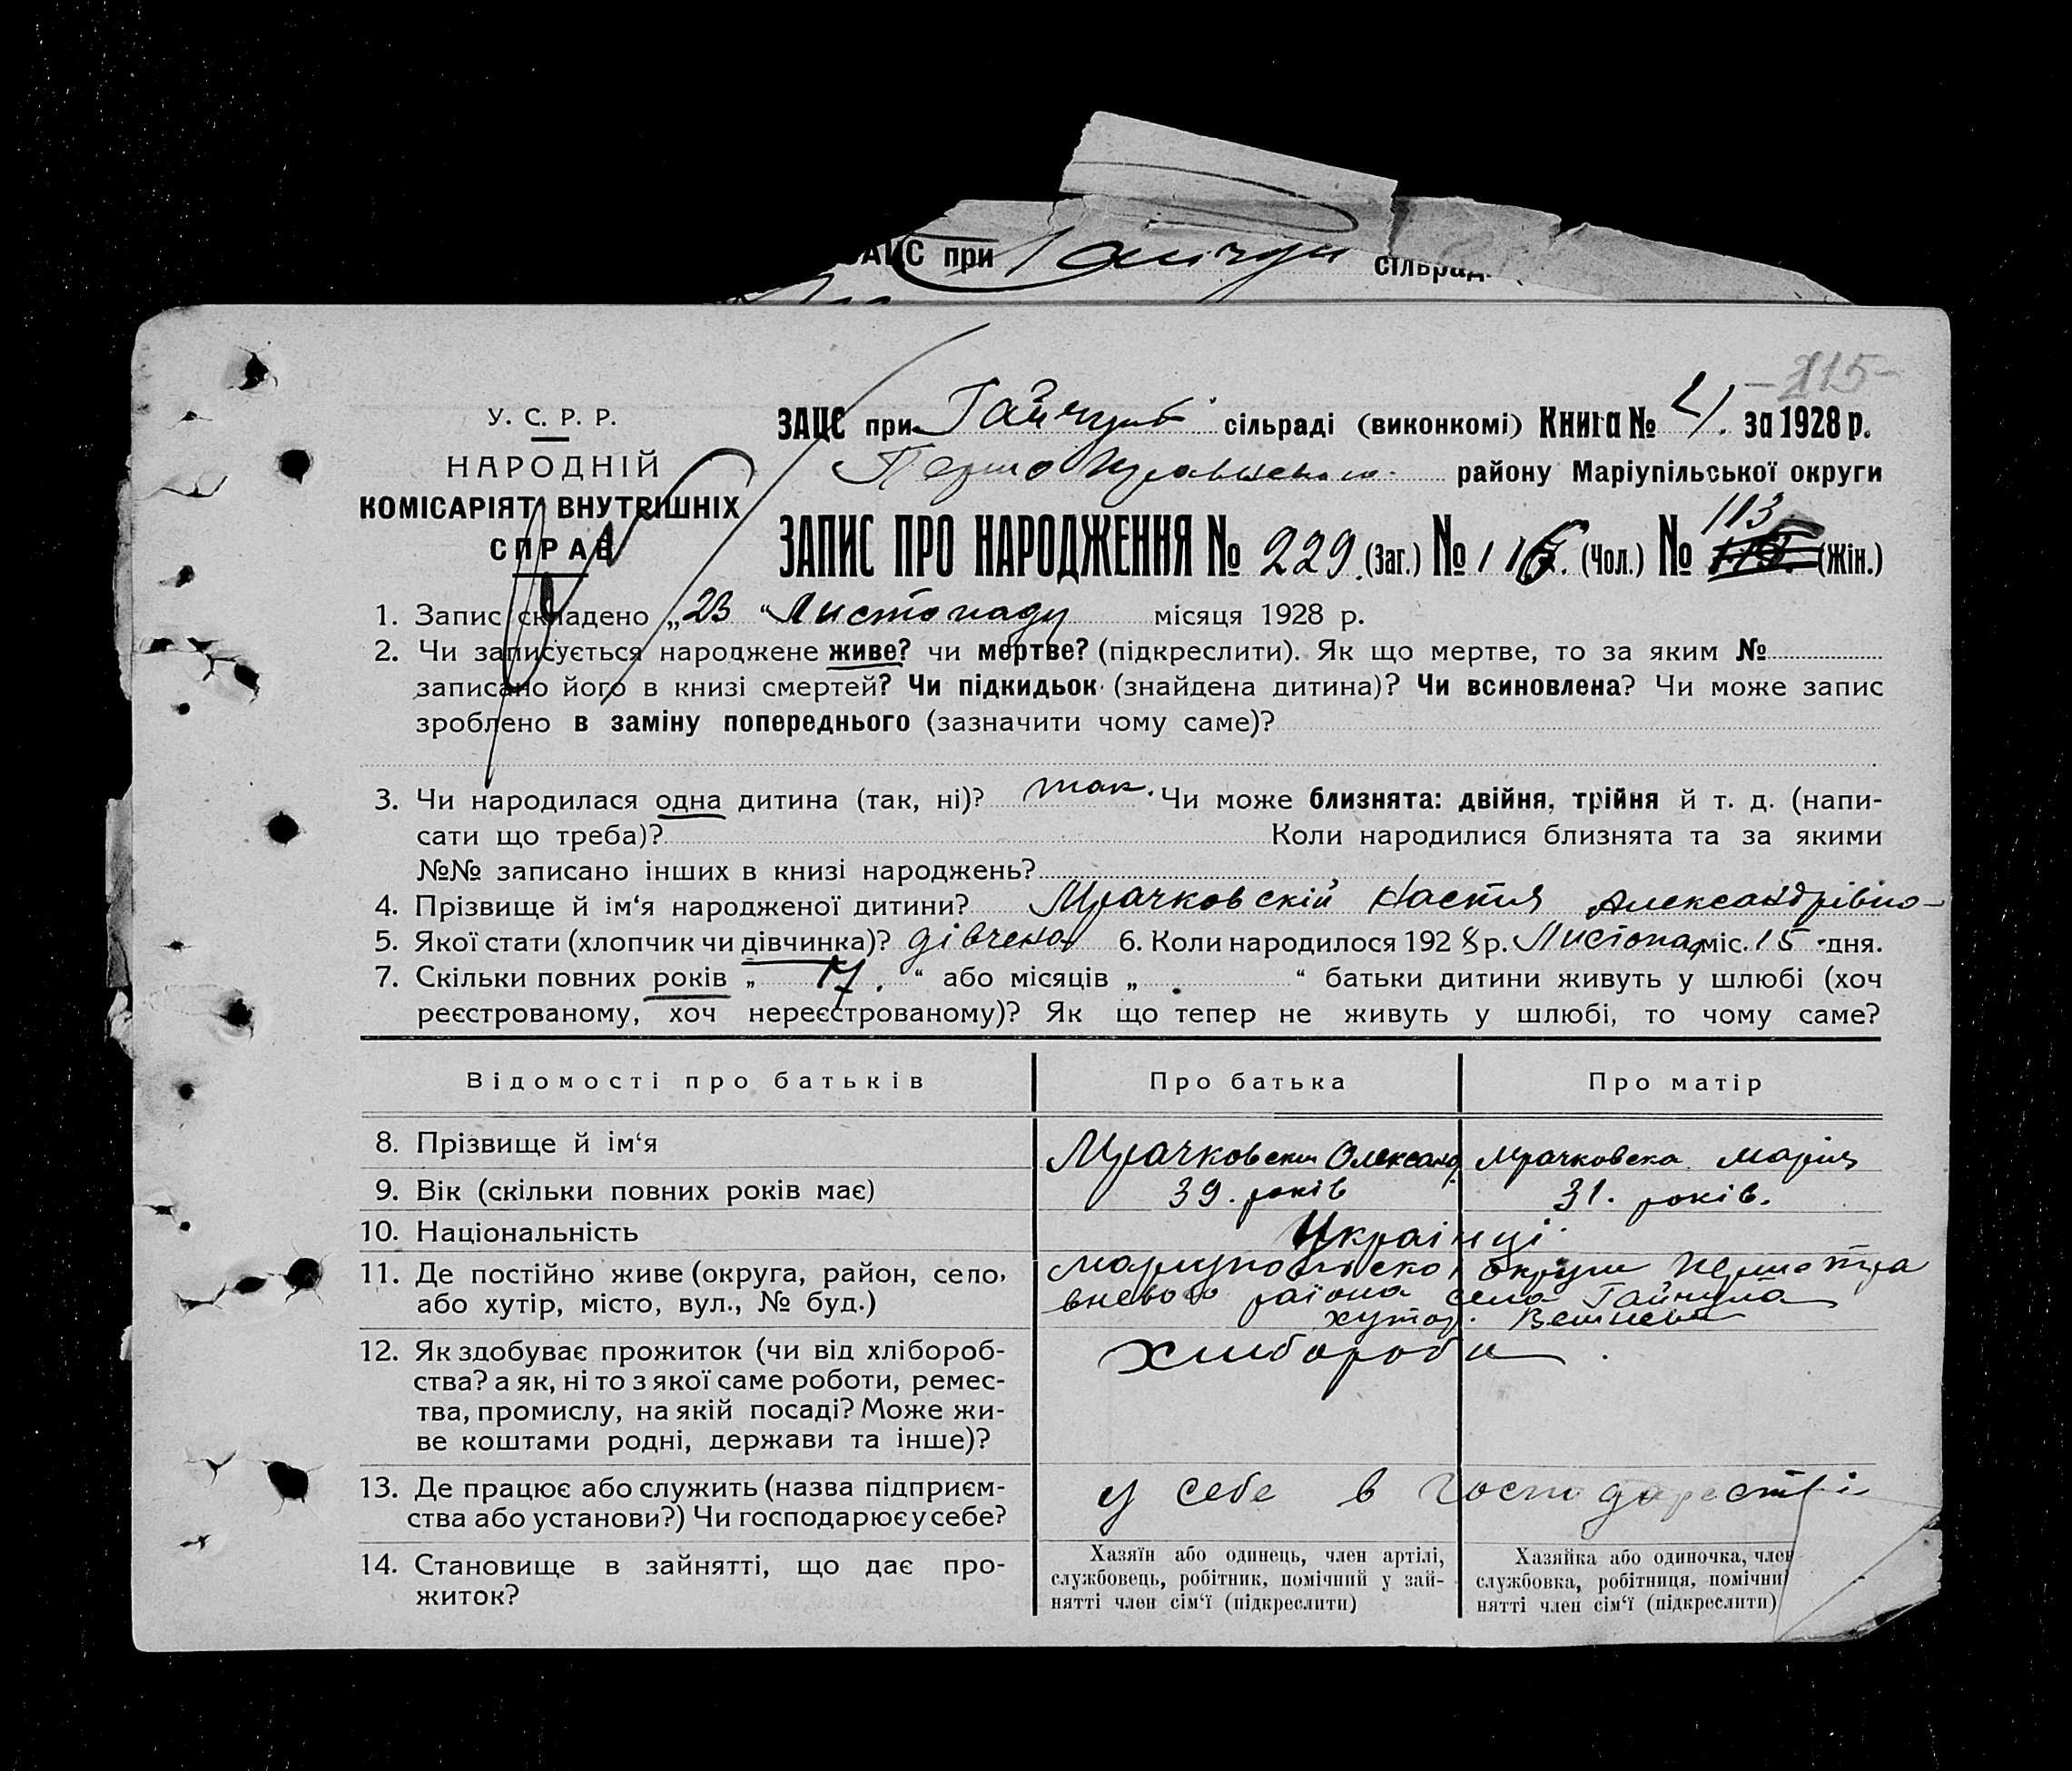 ЗАЦС при Гайчул сільрад.
-215-
У. С. Р. Р.
НАРОДНІЙ
КОМІСАРІЯТ ВНУТРІШНІХ
СПРАВ
ЗАЦС при Гайчулі сільраді (виконкомі) Книга № 21. за 1928 р.
Першо Травневого району Маріупільської округи
113
ЗАПИС ПРО НАРОДЖЕННЯ № 229. (Заг.) № 116. (Чол.) № (Жін.)
1. Запис складено „23 “ Листопаду місяця 1928 р.
2. Чи записується народжене живе? чи мертве? (підкреслити). Як що мертве, то за яким №
записано його в книзі смертей? Чи підкидьок (знайдена дитина)? Чи всиновлена? Чи може запис
зроблено в заміну попереднього (зазначити чому саме)?
3. Чи народилася одна дитина (так, ні)? так. Чи може близнята: двійня, трійня й т. д. (напи-
сати що треба)? Коли народилися близнята та за якими
№№ записано інших в книзі народжень?
4. Прізвище й ім‘я народженої дитини? Мрачковскій Настя Александрівно
5. Якої стати (хлопчик чи дівчинка)? дівчена 6. Коли народилося 1928 р. Листопад міс. 15 дня.
7. Скільки повних років „ 17. “ або місяців „ . “ батьки дитини живуть у шлюбі (хоч
реєстрованому, хоч нереєстрованому)? Як що тепер не живуть у шлюбі, то чому саме?
Відомості про батьків Про батька Про матір
8. Прізвище й ім‘я Мрачковский Олександ. Мрачковска Марія
9. Вік (скільки повних років має) 39. років 31. років.
10. Національність Украінці
11. Де постійно живе (округа, район, село, Мариупольскоі округи Першотра
або хутір, місто, вул., № буд.) вневого раіона села Гайчула
хутор.
12. Як здобуває прожиток (чи від хлібороб- Хлибороби.
ства? а як, ні то з якої саме роботи, ремес-
тва, промислу, на якій посаді? Може жи-
ве коштами родні, держави та інше)?
13. Де працює або служить (назва підприєм- у себе в господарстві
ства або установи?) Чи господарює у себе?
14. Становище в зайнятті, що дає про-
житок?
Хазяїн або одинець, член артілі,
службовець, робітник, помічний у зай-
нятті член сім‘ї (підкреслити)
Хазяйка або одиночка, член
службовка, робітниця, помічни
нятті член сім‘ї (підкреслити)